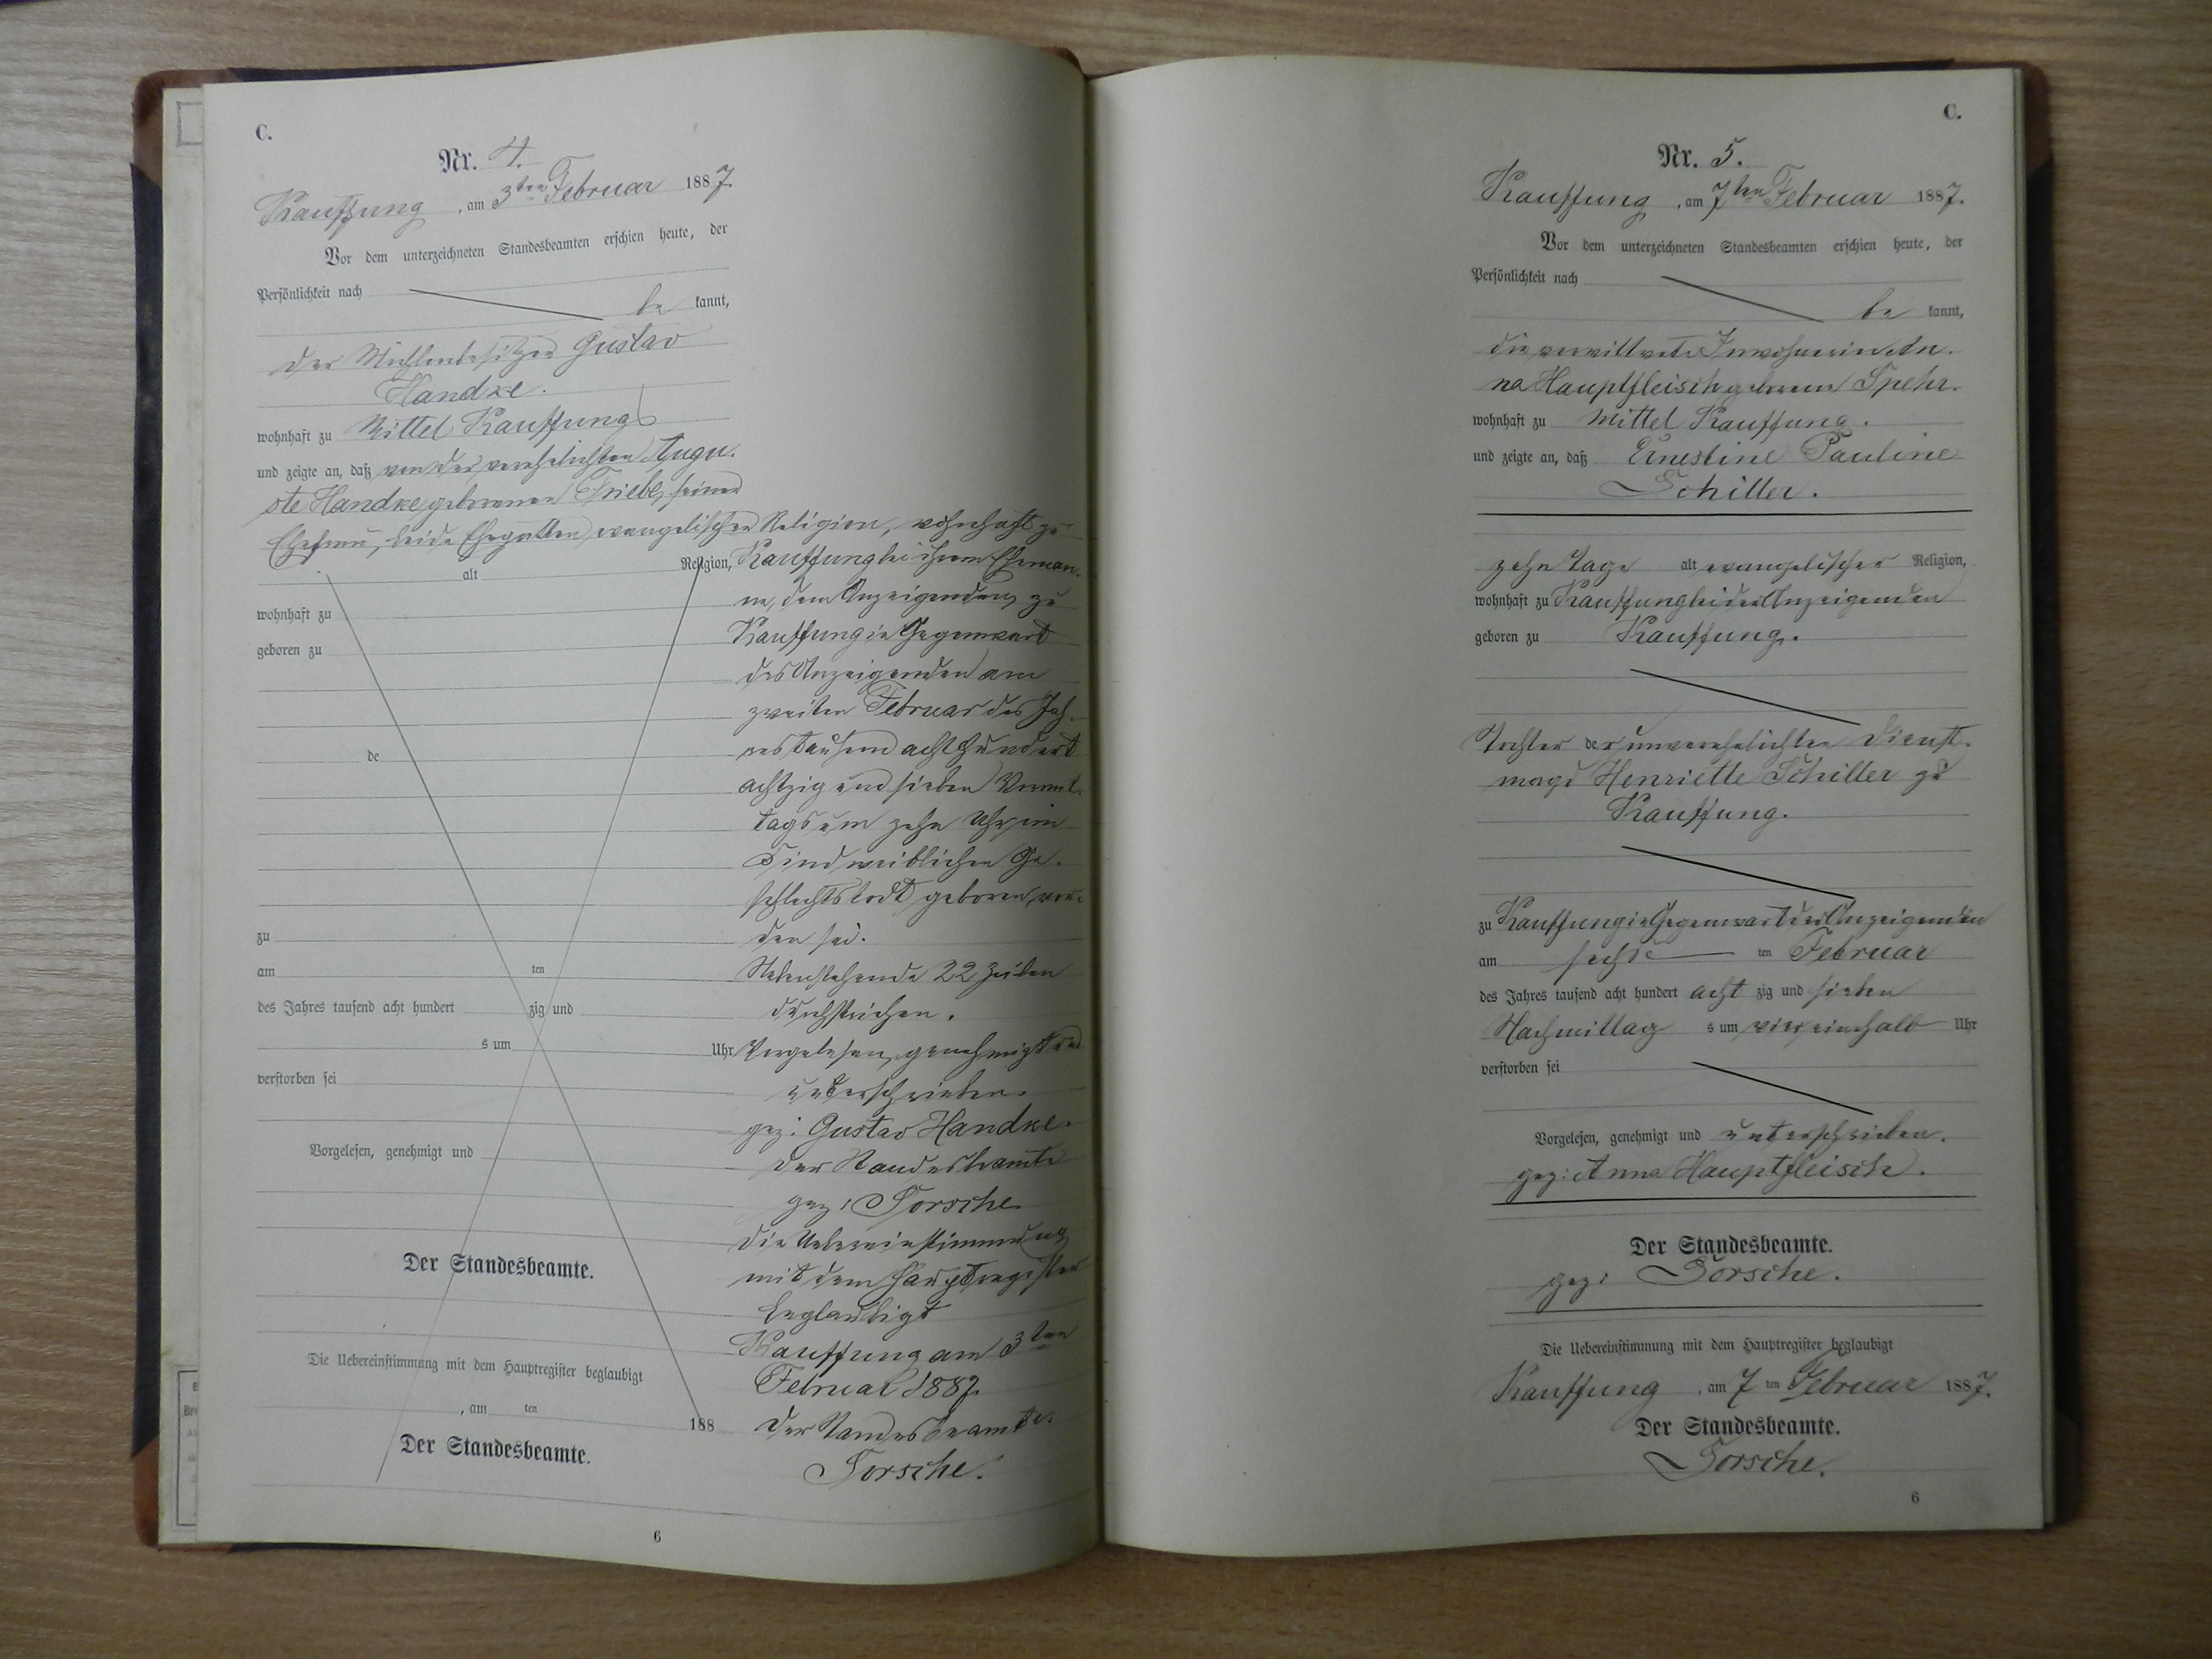 C.
Nr. 4.
Kauffung, am 3ten Februar 1887.
Vor dem unterzeichneten Standesbeamten erschien heute, der
Persönlichkeit nach
be kannt,
der Mühlenbesitzer Gustav
Handke.
wohnhaft zu Mittel Kauffung
und zeigte an, daß von der verehelichten Augu-
ste Handke geborenen Friebe, seiner
Ehefrau, beide Ehegatten evangelischer Religion, wohnhaft zu
alt Religion, Kauffung bei ihrem Eheman-
ne, dem Anzeigenden, zu
wohnhaft zu Kauffung in Gegenwart
geboren zu des Anzeigenden am
zweiten Februar des Jah-
res tausend achthundert
de
achtzig und sieben Vormit-
tags um zehn Uhr ein
Kind weiblichen Ge-
schlechts todt geboren wor-
zu den sei.
am ten Nebenstehende 22 Zeilen
des Jahres tausend acht hundert zig und durchstrichen.
s um Uhr Vorgelesen, genehmigt und
verstorben sei unterschrieben.
gez: Gustav Handke.
Vorgelesen, genehmigt und Der Standesbeamte
gez: Forsche
Die Uebereinstimmung
Der Standesbeamte. mit dem Hauptregister
beglaubigt
Kauffung am 3ten
Die Uebereinstimmung mit dem Hauptregister beglaubigt Februar 1887.
, am ten 188 Der Standesbeamte.
Der Standesbeamte. Forsche.
6
C.
Nr. 5.
Kauffung, am 7ten Februar 1887.
Vor dem unterzeichneten Standesbeamten erschien heute, der
Persönlichkeit nach
be kannt,
die verwittwete Inwohnerin An-
na Hauptfleisch geborene Spehr.
wohnhaft zu Mittel Kauffung.
und zeigte an, daß Ernestine Pauline
Schiller.
zehn Tage alt evangelischer Religion,
wohnhaft zu Kauffung bei der Anzeigenden
geboren zu Kauffung.
Tochter der unverehelichten Dienst-
magd Henriette Schiller zu
Kauffung.
zu Kauffung in Gegenwart der Anzeigenden
am sechs ten Februar
des Jahres tausend acht hundert acht zig und sieben
Nachmittag s um vier einhalb Uhr
verstorben sei
Vorgelesen, genehmigt und unterschrieben.
gez: Anna Hauptfleisch.
Der Standesbeamte.
gez: Forsche.
Die Uebereinstimmung mit dem Hauptregister beglaubigt
Kauffung, am 7 ten Februar 1887.
Der Standesbeamte.
Forsche.
6